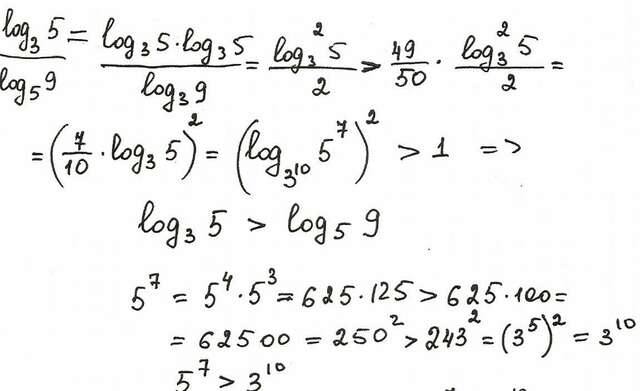 log₃5/log₅9 = log₃5·log₃5/log₃9 = log₃²5/2 > 49/50 · log₃²5/2 =
= (7/10 · log₃5)² = (log₃¹⁰ 5⁷)² > 1 =>
log₃5 > log₅9
5⁷ = 5⁴·5³ = 625·125 > 625·100 =
= 62500 = 250² > 243² = (3⁵)² = 3¹⁰
5⁷ > 3¹⁰